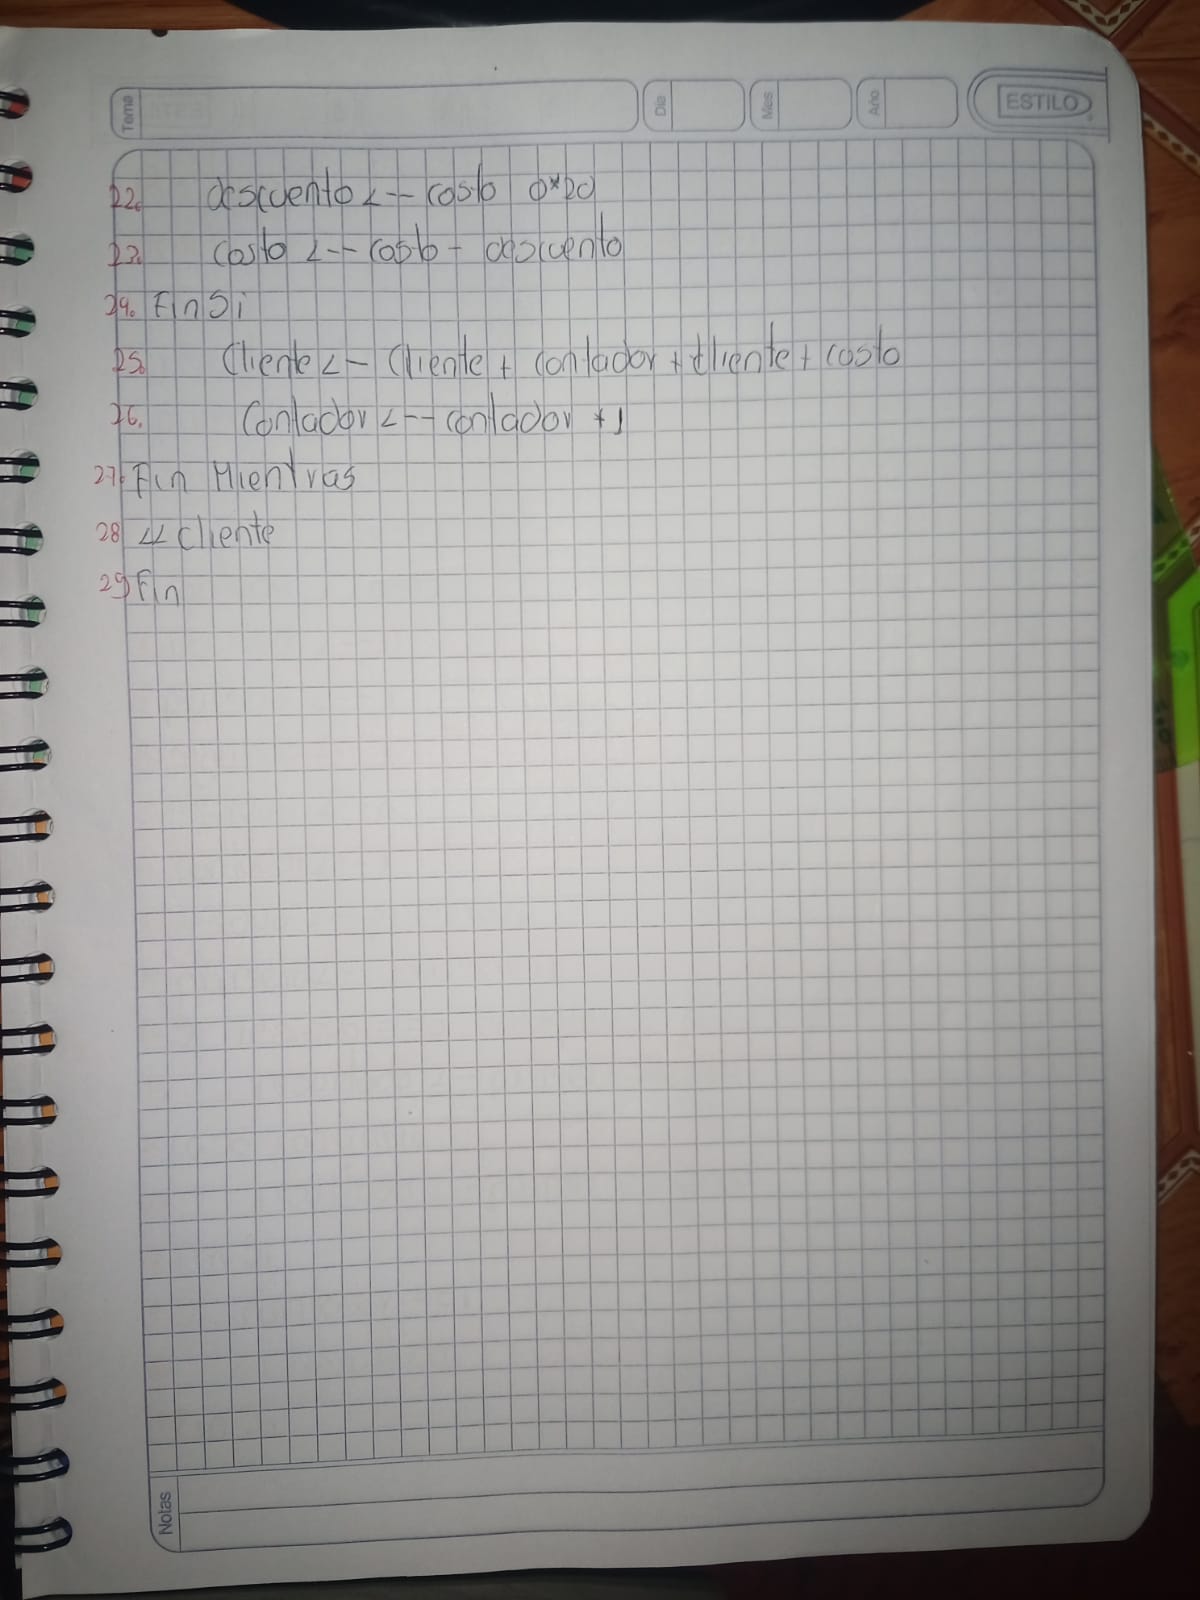 Tema Día Mes Año ESTILO
22. descuento <-- costo 0*20
23. costo <-- costo - descuento
24. Fin Si
25. Cliente <- Cliente + contador + cliente + costo
26. Contador <-- contador +1
27. Fin Mientras
28 << cliente
29 Fin
Notas